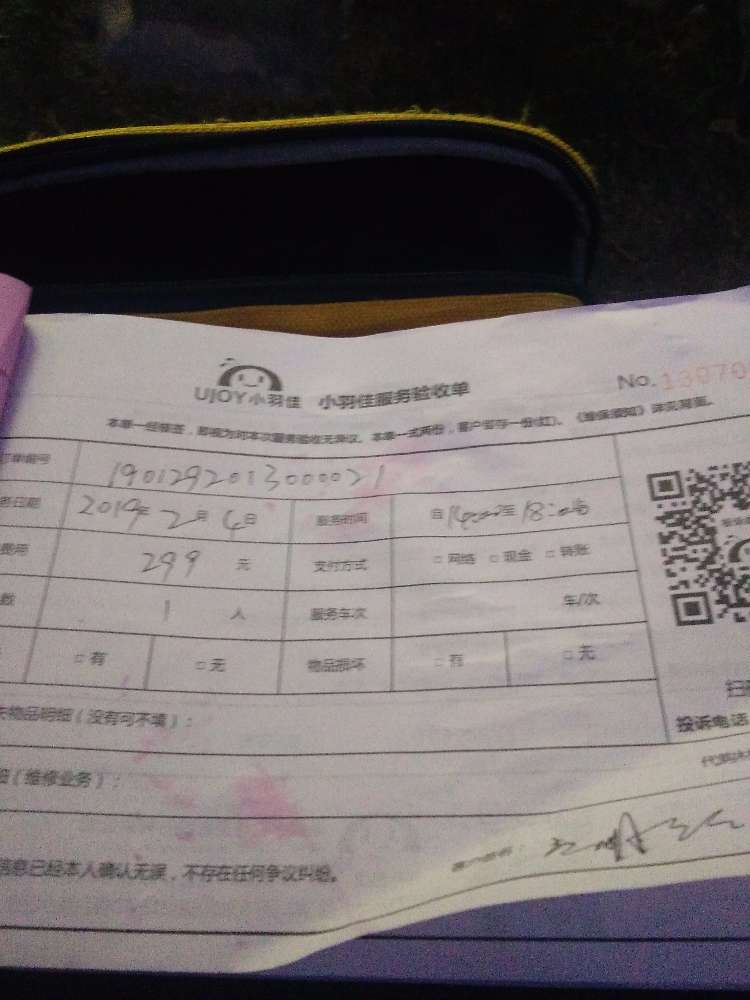 UJOY小羽佳 小羽佳服务验收单 No.13070
本单一经修签，即视为对本次服务验收无异议。本单一式两份，客户留存一份(红)。《维保须知》详见背面。
订单编号 1901292013000021
务日期 2019年2月4日 服务时间 自14:00至18:00当
费用 299 元 支付方式 □网络 □现金 □转账
数 1 人 服务车次 车/次
□有 □无 物品损坏 □有 □无
失物品明细（没有可不填）：
投诉电话
细（维修业务）：
信息已经本人确认无误，不存在任何争议纠纷。
客户签名：